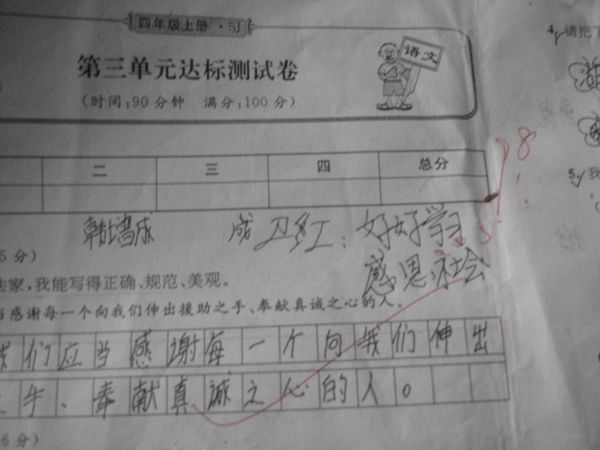 四年级上册·SJ
语文
第三单元达标测试卷
(时间:90分钟 满分:100分)
4. 请把下
二 三 四 总分
8
5. 我
好好学习
5分)
感恩社会
法家,我能写得正确、规范、美观。
当感谢每一个向我们伸出援助之手、奉献真诚之心的人。
我们应当感谢每一个向我们伸出
之手、奉献真诚之心的人。
6分)